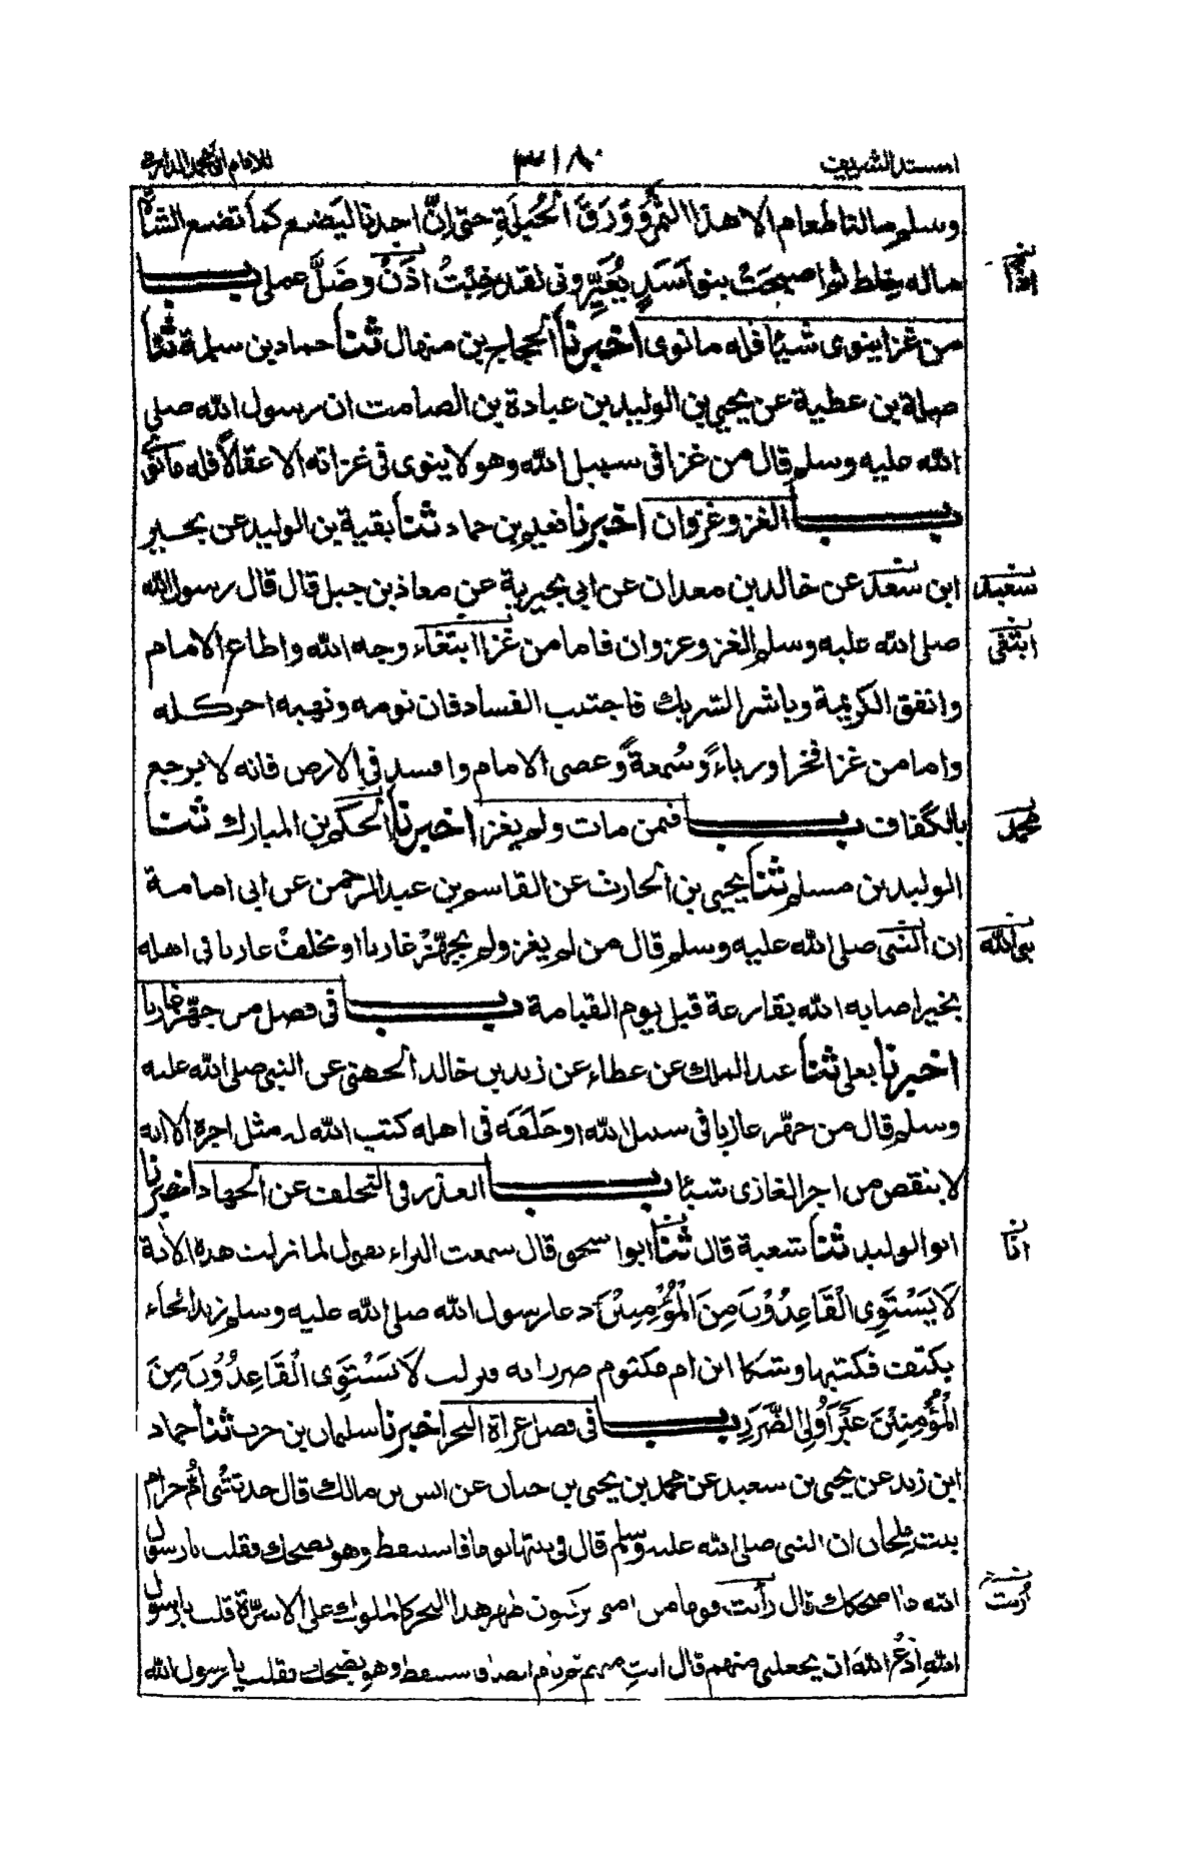 المسند الشريف ٣١٨ للامام ابى محمد الدارمى
وسلم مالنا طعام الا هذا السَّمُر وَوَرَقَ الْحُبُلَةِ حتى اِنَّ احدنا ليضع كما تضع الشاة
ماله خلط ثم اصبحتْ بنو اَسَدٍ يُعَيِّروني لقد خِبْتُ اذَنْ وضَلَّ عملى باب
اذًا
من غزا ينوى شيئا فله ما نوى اخبرنا الحجاج بن منهال ثنا حماد بن سلمة ثنا
جبلة بن عطية عن يحيى بن الوليد بن عبادة بن الصامت ان رسول الله صلى
الله عليه وسلم قال من غزا فى سبيل الله وهو لا ينوى فى غزاته الا عقالاً فله ما نوى
باب الغزو غزوان اخبرنا نعيم بن حماد ثنا بقية بن الوليد عن بحير
ابن سعد عن خالد بن معدان عن ابى بحيرية عن معاذ بن جبل قال قال رسول الله
سعيد
صلى الله عليه وسلم الغزو غزوان فاما من غزا ابتغاء وجه الله واطاع الامام
ابتغى
وانفق الكريمة وياشر الشريك فاجتنب الفساد فان نومه ونهبه اجر كله
واما من غزا فخرا ورياءً وسُمعةً وعصى الامام وافسد فى الارض فانه لا يرجع
بالكَفاف باب فيمن مات ولم يغز اخبرنا الحكم بن المبارك ثنا
محمد
الوليد بن مسلم ثنا يحيى بن الحارث عن القاسم بن عبد الرحمن عن ابى امامة
ان النبى صلى الله عليه وسلم قال من لم يغز ولم يجهّزْ غازيا او يخلفْ غازيا فى اهله
نبى الله
بخير اصابه الله بقارعة قبل يوم القيامة باب فى فضل من جهّز غازيا
اخبرنا يعلى ثنا عبد الملك عن عطاء عن زيد بن خالد الجهنى عن النبى صلى الله عليه
وسلم قال من جهّز غازيا فى سبيل الله او خَلَفَه فى اهله كتب الله له مثل اجره الا انه
لا ينقص من اجر الغازى شيئا باب العذر فى التخلف عن الجهاد اخبرنا
ابو الوليد ثنا شعبة قال ثنا ابو اسحق قال سمعت البراء يقول لما نزلت هذه الاية
انا
لَا يَسْتَوِى الْقَاعِدُوْنَ مِنَ الْمُؤْمِنِيْنَ دعا رسول الله صلى الله عليه وسلم زيدا فجاء
بكتف فكتبها وشكا ابن ام مكتوم ضررا به فنزلت لَا يَسْتَوِى الْقَاعِدُوْنَ مِنَ
الْمُؤْمِنِيْنَ غَيْرَ اُولِى الضَّرَرِ باب فى فضل غزاة البحر اخبرنا سليمان بن حرب ثنا حماد
ابن زيد عن يحيى بن سعيد عن محمد بن يحيى بن حبان عن انس بن مالك قال حدثتنى اُمُّ حرام
بنت مِلحان ان النبى صلى الله عليه وسلم قال فى بيتها يوما فاستيقظ وهو يضحك فقلت يا رسول
الله ما اضحكك قال رأيت قوما من امتى يركبون ظهر هذا البحر كالملوك على الاسرّة قلت يا رسول
اُريت
اللهِ اُدْعُ اللهَ ان يجعلنى منهم قال انتِ منهم ثم نام ايضا فاستيقظ وهو يضحك فقلت يا رسول الله